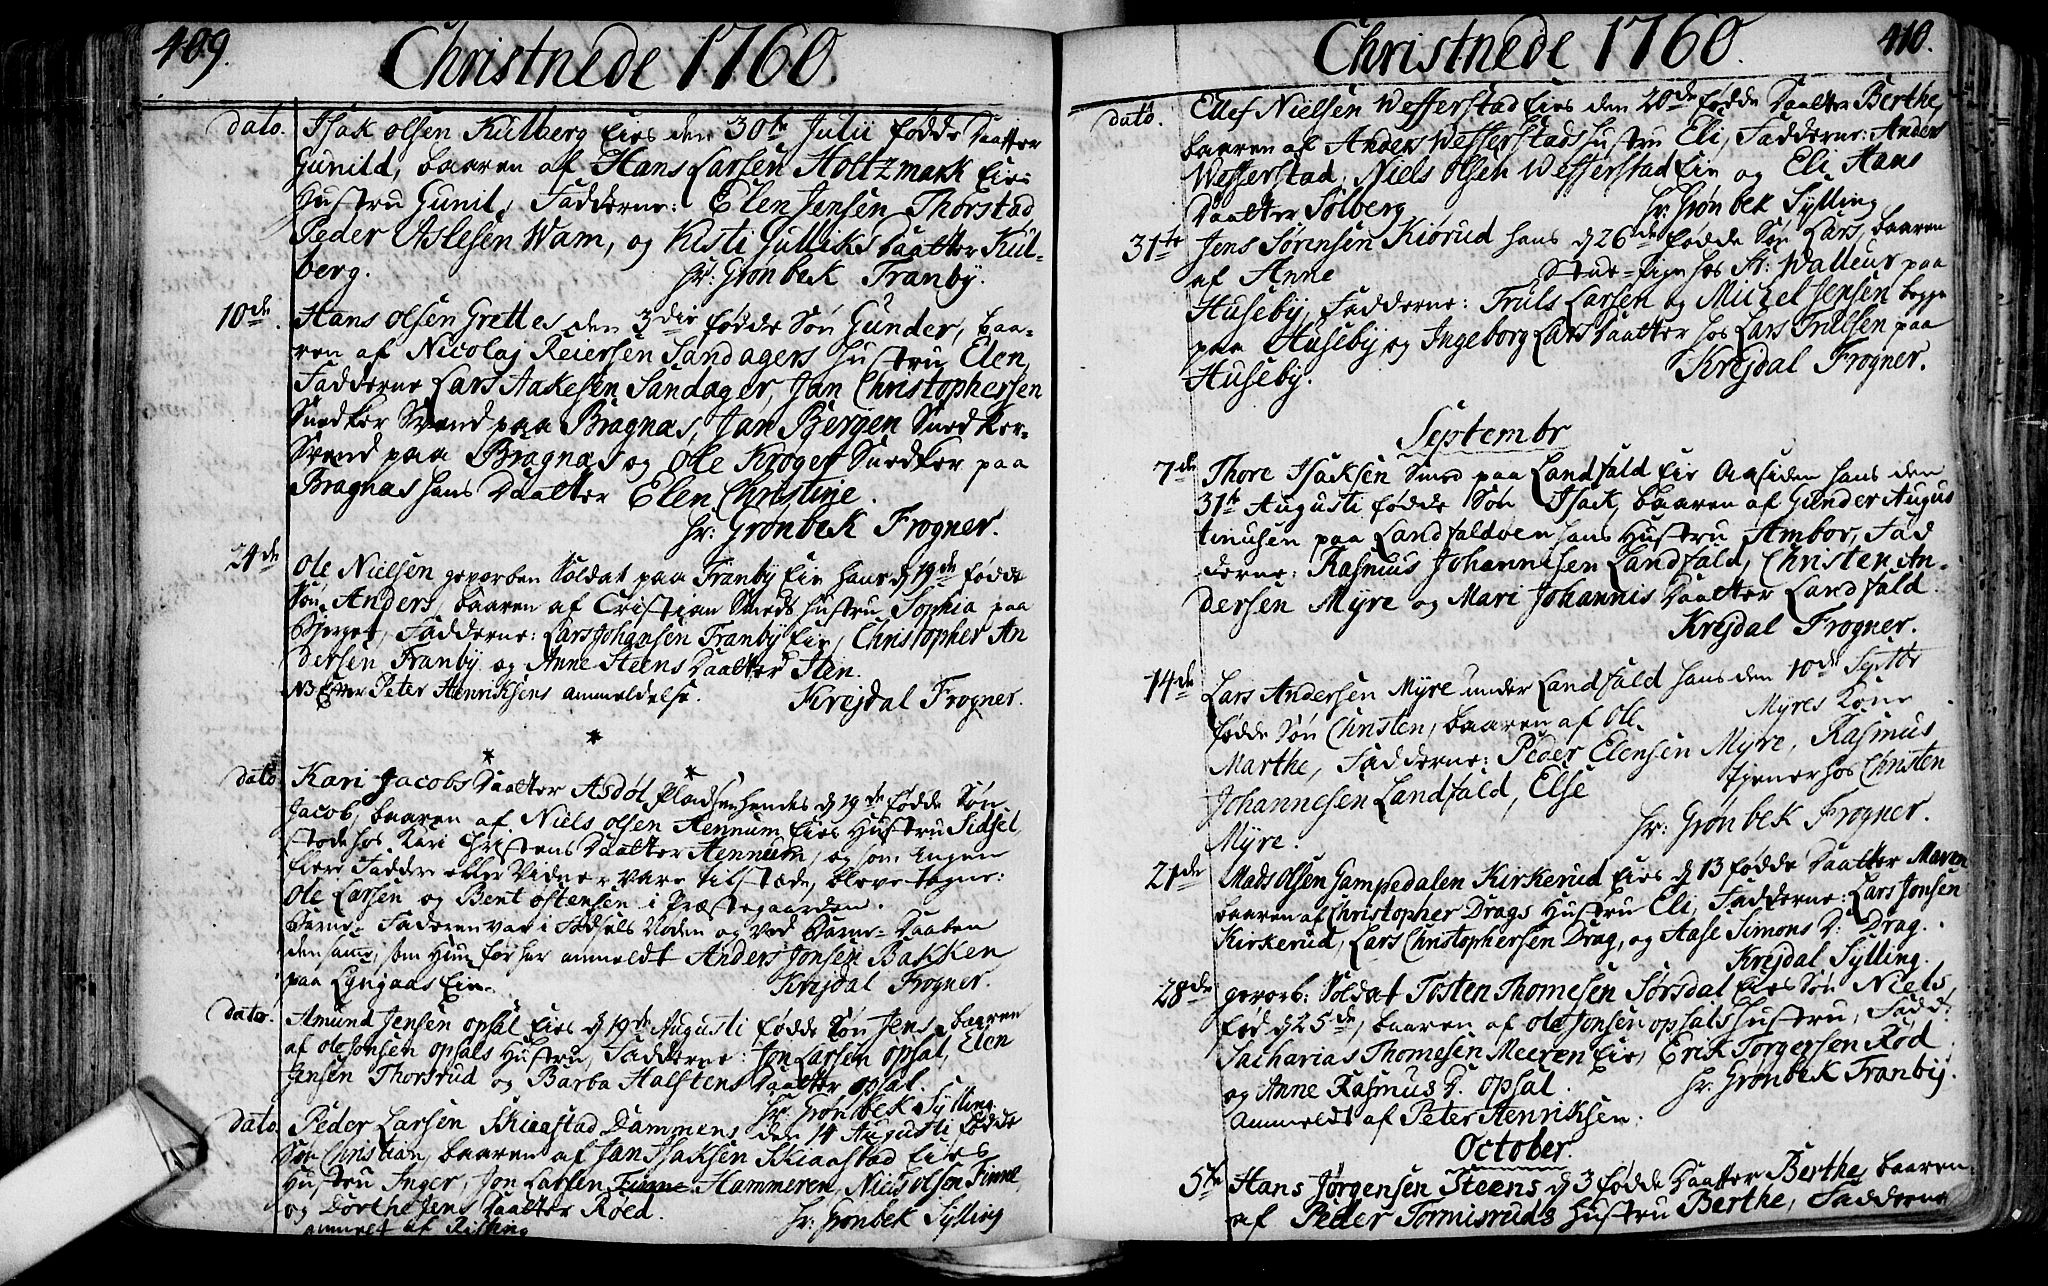 409.
Christnede 1760.
dato. Isak olsen Kulberg Eies den 30te Julii fødde Daatter
Gunild, baaren af Hans Larsen Holtzmark Eies
Hustru Gunil, Fadderne: Elen Jensen Thorstad
Peder Aslesen Wam, og Kisti Gulliks Daatter Kul-
berg. hr: Grønbek Tranby.
10de. Hans olsen Grettes den 3die fødde Søn Gunder, baa-
ren af Nicolaj Reiersen Sandagers Hustru Elen,
Fadderne Lars Aakesen Sandager, Jan Christophersen
Snedker Svend paa Bragnæs, Jan Bergen Snedker-
Svend paa Bragnæs og Ole Krøger Snedker paa
Bragnæs hans Daatter Elen Christine.
hr: Grønbek Frogner.
24de Ole Nielsen gevorben Soldat paa Tranby Eie hans d 19de fødde
Søn Anders, baaren af Cristian Smeds Hustru Sophia paa
Bierget, Fadderne: Lars Johansen Tranby Eie, Christopher An
dersen Tranby og Anne Steens Daatter Sten.
NB Efter Peter Henriksens anmeldelse. Krejdal Frogner.
dato Kari Jacobs Daatter Asdøl Pladsen hendes d 19de fødde Søn
Jacob, baaren af Niels olsen Aennum Eies Hustru Sidsel,
stode hos Kari Christens Daatter Aennum, og som Ingen
flere Faddere eller Vidner vare tilstæde, bleve tagne:
Ole Larsen og Bent østensen i Præstegaarden.
Barne-Faderen var i Fødsels Noden og ved Barne-Daaben
den samme, som Hun før har anmeldt Anders Jonsen Bakken
paa Lyngaas Eie. Krejdal Frogner.
dato. Amund Jensen opsal Eies d 19de Augusti fødde Søn Jens, baaren
af ole Jonsen opsals Hustru, Fadderne: Jon Larsen opsal, Elen
Jensen Thorsrud og Barba Halstens Daatter opsal.
hr: Grønbek Sylling.
dato Peder Larsen Skiaastad Dammens den 14 Augusti fødde
Søn Christian, baaren af Jan Isaksen Skiaastad Eies
Hustru Inger, Jon Larsen Finne Hammeren, Niels olsen Finne,
og Dorthe Jens Daatter Roed.
hr: Grønbek Sylling
anmelt af
410.
Christnede 1760.
dato. Ellef Nielsen Wefferstad Eies den 20de fødde Daatter Berthe,
baaren af Anders Wefferstads Hustru Eli, Fadderne: Anders
Wefferstad, Niels olsen Wefferstad Eie og Eli Hans
Daatter Solberg hr: Grønbek Sylling
31te Jens Sørensen Kiørud hans d 26de fødde Søn Lars, baaren
af Anne Stue-Pige hos Hr: Walleur paa
Huseby, Fadderne: Truls Larsen og Michel Jensen begge
paa Huseby og Ingeborg Lars Daatter hos Lars Trulsen paa
Huseby. Krejdal Frogner.
Septembr
7de Thore Isacksen Smed paa Landfald Eie Aasiden hans den
31te Augusti fødde Søn Isack, baaren af Gunder Augus
tinusen paa Landfaldøen hans Hustru Ambor, Fad
derne: Rasmus Johannesen Landfald, Christen An-
dersen Myre og Mari Johannis Daatter Landfald.
Krejdal Frogner.
14de Lars Andersen Myre under Landfald hans den 10de Septbr
fødde Søn Christen, baaren af Ole Myres Kone
Marthe, Fadderne: Peder Elensen Myre, Rasmus
Johannesen Landfald, Else tjener hos Christen
Myre. hr: Grønbek Frogner.
21de Mads olsen Gampedalen Kirkerud Eies d 13 fødde Daatter Maren
baaren af Christopher Drags Hustru Eli, Fadderne: Lars Jonsen
Kirkerud, Lars Christophersen Drag, og Aase Simons D: Drag.
Krejdal Sylling.
28de gevorb: Soldat Tosten Thomesen Sørsdal Eies Søn Niels,
fød d 25de, baaren af ole Jonsen opsals Hustru, Fadd:
Sacharias Thomesen Meeren Eie, Erik Torgersen Rød
og Anne Rasmus D. opsal. hr: Grønbek Tranby.
Anmeldt af Peter Henriksen.
October.
5te Hans Jørgensen Steens d 3 fødde Daatter Berthe, baaren
af Peder Tormisruds Hustru Berthe, Fadderne